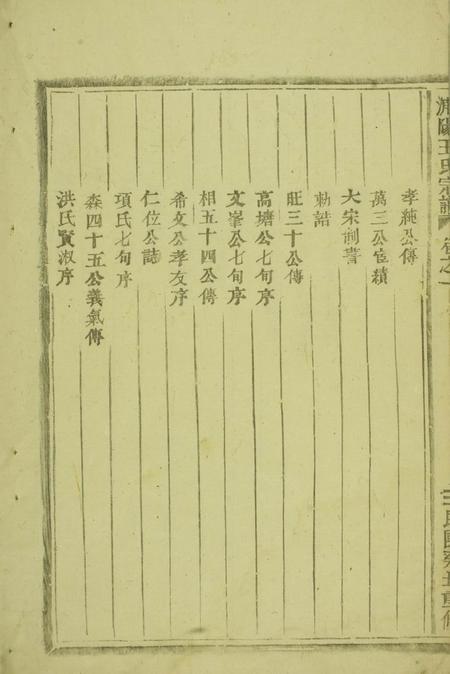 王氏宗譜 卷之一
民國癸丑重修
孝純公傳
萬三公宦績
大宋制書
勅誥
旺三十公傳
高塘公七旬序
文峯公七旬序
相五十四公傳
希文公孝友序
仁位公誌
項氏七旬序
森四十五公義氣傳
洪氏賢淑序